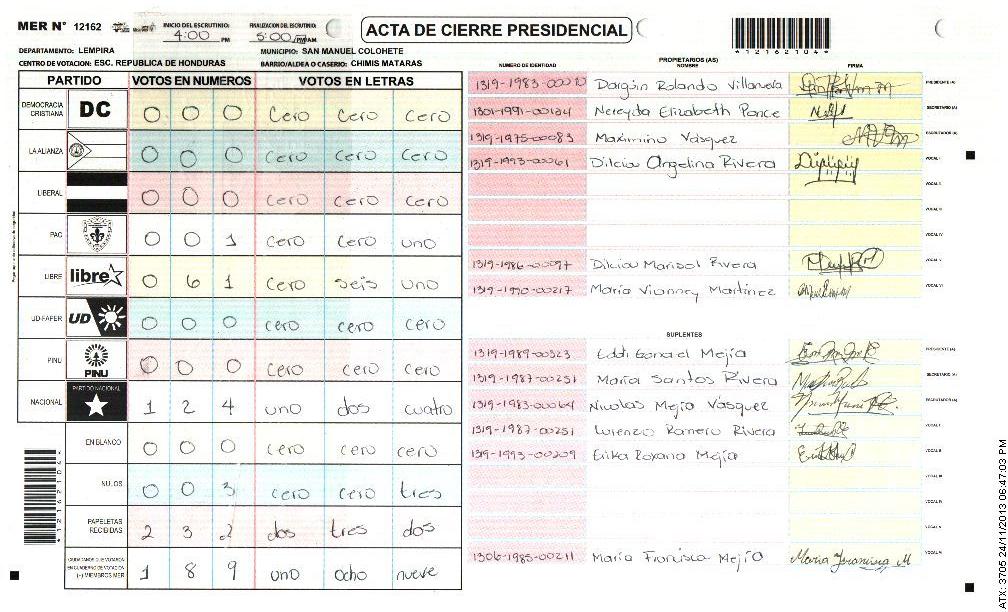 MER N° 12162
INICIO DEL ESCRUTINIO: 4:00 PM
FINALIZACION DEL ESCRUTINIO: 5:00 PM/AM
ACTA DE CIERRE PRESIDENCIAL
*12162104*
DEPARTAMENTO: LEMPIRA
MUNICIPIO: SAN MANUEL COLOHETE
CENTRO DE VOTACION: ESC. REPUBLICA DE HONDURAS
BARRIO/ALDEA O CASERIO: CHIMIS MATARAS
PARTIDO VOTOS EN NUMEROS VOTOS EN LETRAS
DEMOCRACIA CRISTIANA DC 0 0 0 cero cero cero
LA ALIANZA 0 0 0 cero cero cero
LIBERAL 0 0 0 cero cero cero
PAC 0 0 1 cero cero uno
LIBRE libre 0 6 1 cero seis uno
UD-FAPER UD 0 0 0 cero cero cero
PINU PINU 0 0 0 cero cero cero
NACIONAL PARTIDO NACIONAL 1 2 4 uno dos cuatro
EN BLANCO 0 0 0 cero cero cero
NULOS 0 0 3 cero cero tres
PAPELETAS RECIBIDAS 2 3 2 dos tres dos
CIUDADANOS QUE VOTARON EN CUADERNO DE VOTACION (+) MIEMBROS MER 1 8 9 uno ocho nueve
*12162104*
PROPIETARIOS (AS)
NUMERO DE IDENTIDAD NOMBRE FIRMA
1319-1983-00010 Darguin Rolando Villanueva PRESIDENTE (A)
1301-1991-00134 Nereyda Elizabeth Ponce SECRETARIO (A)
1319-1975-00083 Maximino Vasquez ESCRUTADOR (A)
1319-1993-00061 Dilcia Angelina Rivera VOCAL I
VOCAL II
VOCAL III
VOCAL IV
1319-1986-00097 Dilcia Marisol Rivera VOCAL V
1319-1990-00217 Maria Vianney Martinez VOCAL VI
SUPLENTES
1319-1989-00323 Eddi Gonael Mejía PRESIDENTE (A)
1319-1987-00251 María Santos Rivera SECRETARIO (A)
1319-1983-00064 Nicolas Mejia Vásquez ESCRUTADOR (A)
1319-1987-00251 Lorenzo Romero Rivera VOCAL I
1319-1993-00209 Erika Roxana Mejía VOCAL II
VOCAL III
VOCAL IV
VOCAL V
1306-1985-00211 María Francisca Mejía VOCAL VI
ATX: 3705 24/11/2013 06:47:03 PM